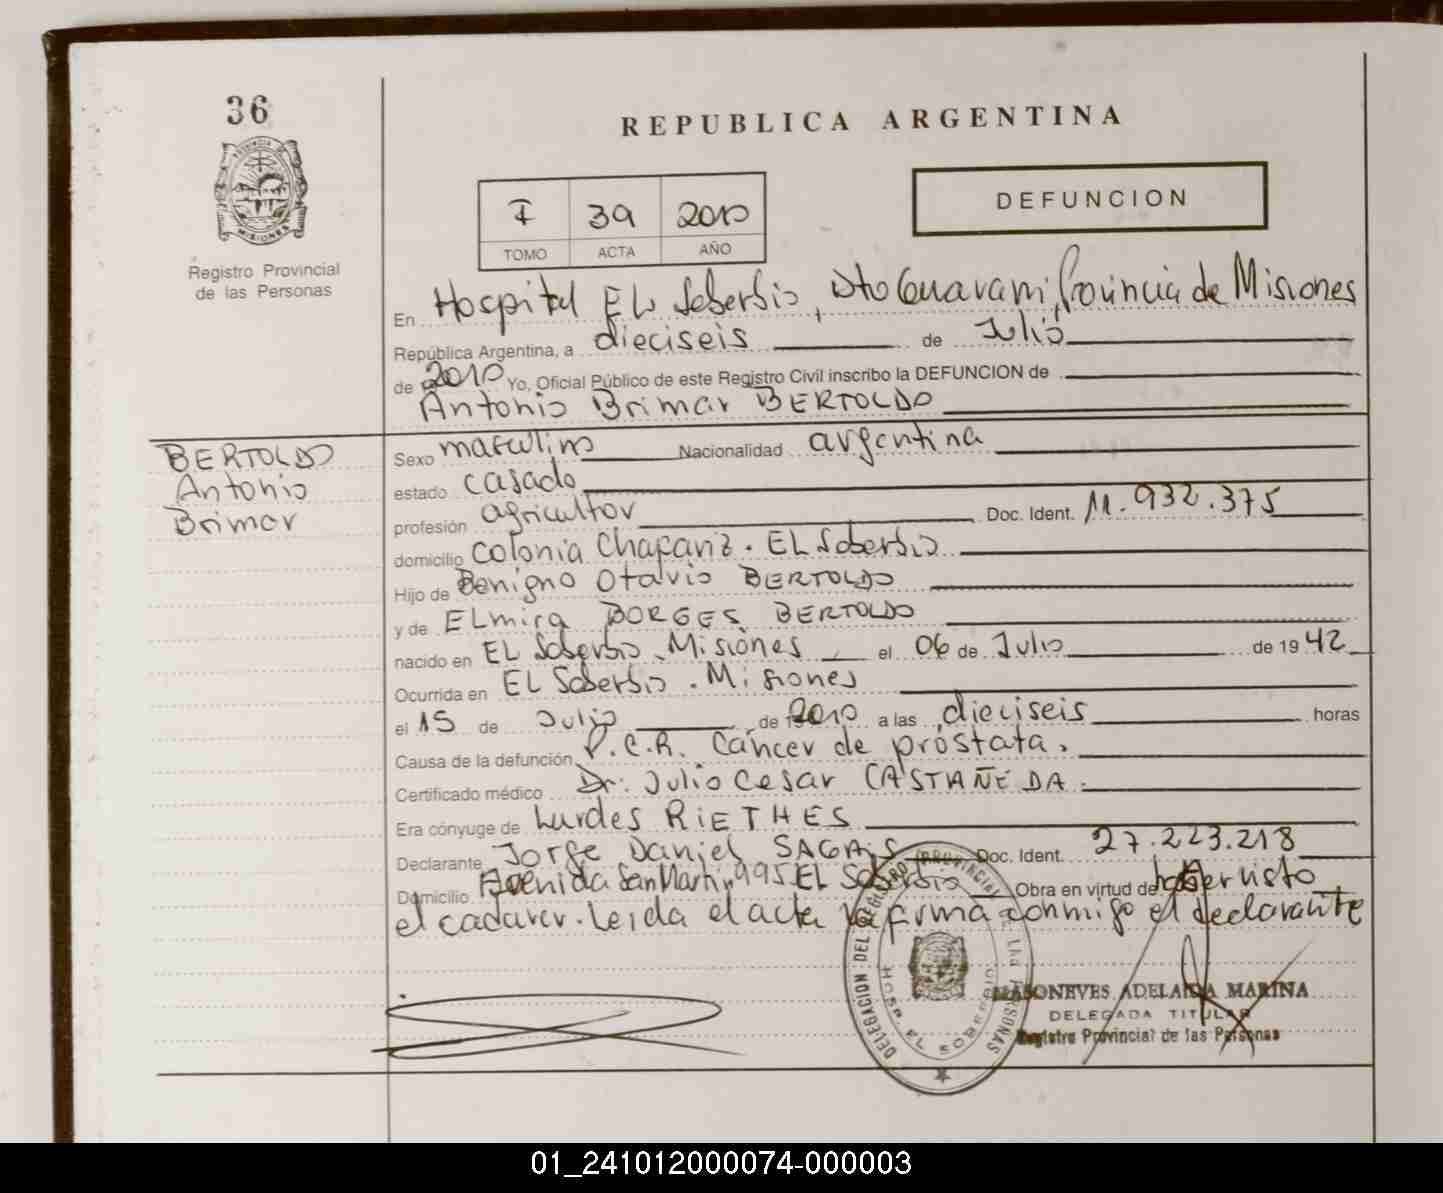 36
REPUBLICA ARGENTINA
PROVINCIA
MISIONES
Registro Provincial
de las Personas
I 39 2010
TOMO ACTA AÑO
DEFUNCION
En Hospital EL Soberbio, Dto Guarani, Provincia de Misiones
República Argentina, a dieciseis de Julio
de 2010 Yo, Oficial Público de este Registro Civil inscribo la DEFUNCION de
Antonio Brimar BERTOLDO
BERTOLDO
Antonio
Brimar
Sexo masculino Nacionalidad argentina
estado casado
profesión agricultor Doc. Ident. 11.932.375
domicilio Colonia Chafariz. EL Soberbio
Hijo de Benigno Otavio BERTOLDO
y de ELmira BORGES BERTOLDO
nacido en EL Soberbio, Misiones el 06 de Julio de 1942
Ocurrida en EL Soberbio. Misiones
el 15 de Julio de 2010 a las dieciseis horas
Causa de la defunción P.C.R. Cáncer de próstata.
Certificado médico Dr. Julio Cesar CASTAÑEDA.
Era cónyuge de Lurdes RIETHES
Declarante Jorge Daniel SAGAIS Doc. Ident. 27.223.218
Domicilio Avenida San Martin 995 EL Soberbio Obra en virtud de haber visto
el cadaver. Leida el acta la firma conmigo el declarante
DELEGACION DEL REGISTRO PROVINCIAL DE LAS PERSONAS
HOSP. EL SOBERBIO
MASONEVES ADELAIDA MARINA
DELEGADA TITULAR
Registro Provincial de las Personas
01_241012000074-000003